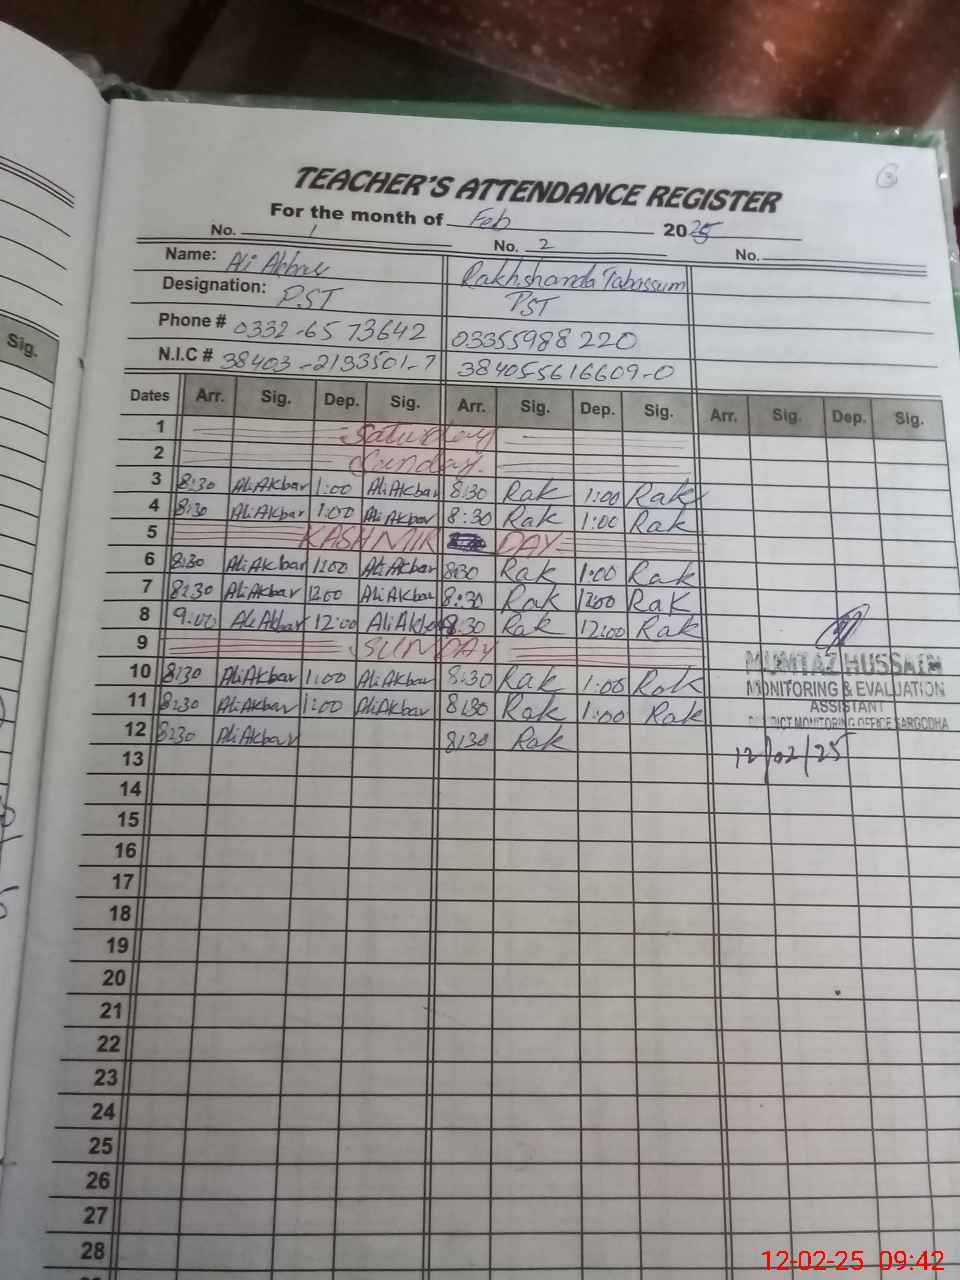 3
TEACHER'S ATTENDANCE REGISTER
For the month of Feb 2025
No. 1 No. 2 No.
Name: Ali Akbar Rakhshanda Tabassum
Designation: PST PST
Phone # 0332-6573642 03355988220
N.I.C # 38403-2133501-7 384055616609-0
Sig.
Dates Arr. Sig. Dep. Sig. Arr. Sig. Dep. Sig. Arr. Sig. Dep. Sig.
1 Saturday
2 Sunday
3 8:30 Ali Akbar 1:00 Ali Akbar 8:30 Rak 1:00 Rak
4 8:30 Ali Akbar 1:00 Ali Akbar 8:30 Rak 1:00 Rak
5 KASHMIR DAY
6 8:30 Ali Akbar 1:00 Ali Akbar 8:30 Rak 1:00 Rak
7 8:30 Ali Akbar 1200 Ali Akbar 8:30 Rak 1200 Rak
8 9:00 Ali Akbar 12:00 Ali Akbar 8:30 Rak 12:00 Rak
9 SUNDAY
MUMTAZ HUSSAIN
10 8:30 Ali Akbar 1:00 Ali Akbar 8:30 Rak 1:00 Rak
MONITORING & EVALUATION
11 8:30 Ali Akbar 1:00 Ali Akbar 8:30 Rak 1:00 Rak
ASSISTANT
DISTRICT MONITORING OFFICE SARGODHA
12 8:30 Ali Akbar 8:30 Rak
12/02/25
13
14
15
16
17
18
19
20
21
22
23
24
25
26
27
28
12-02-25 09:42